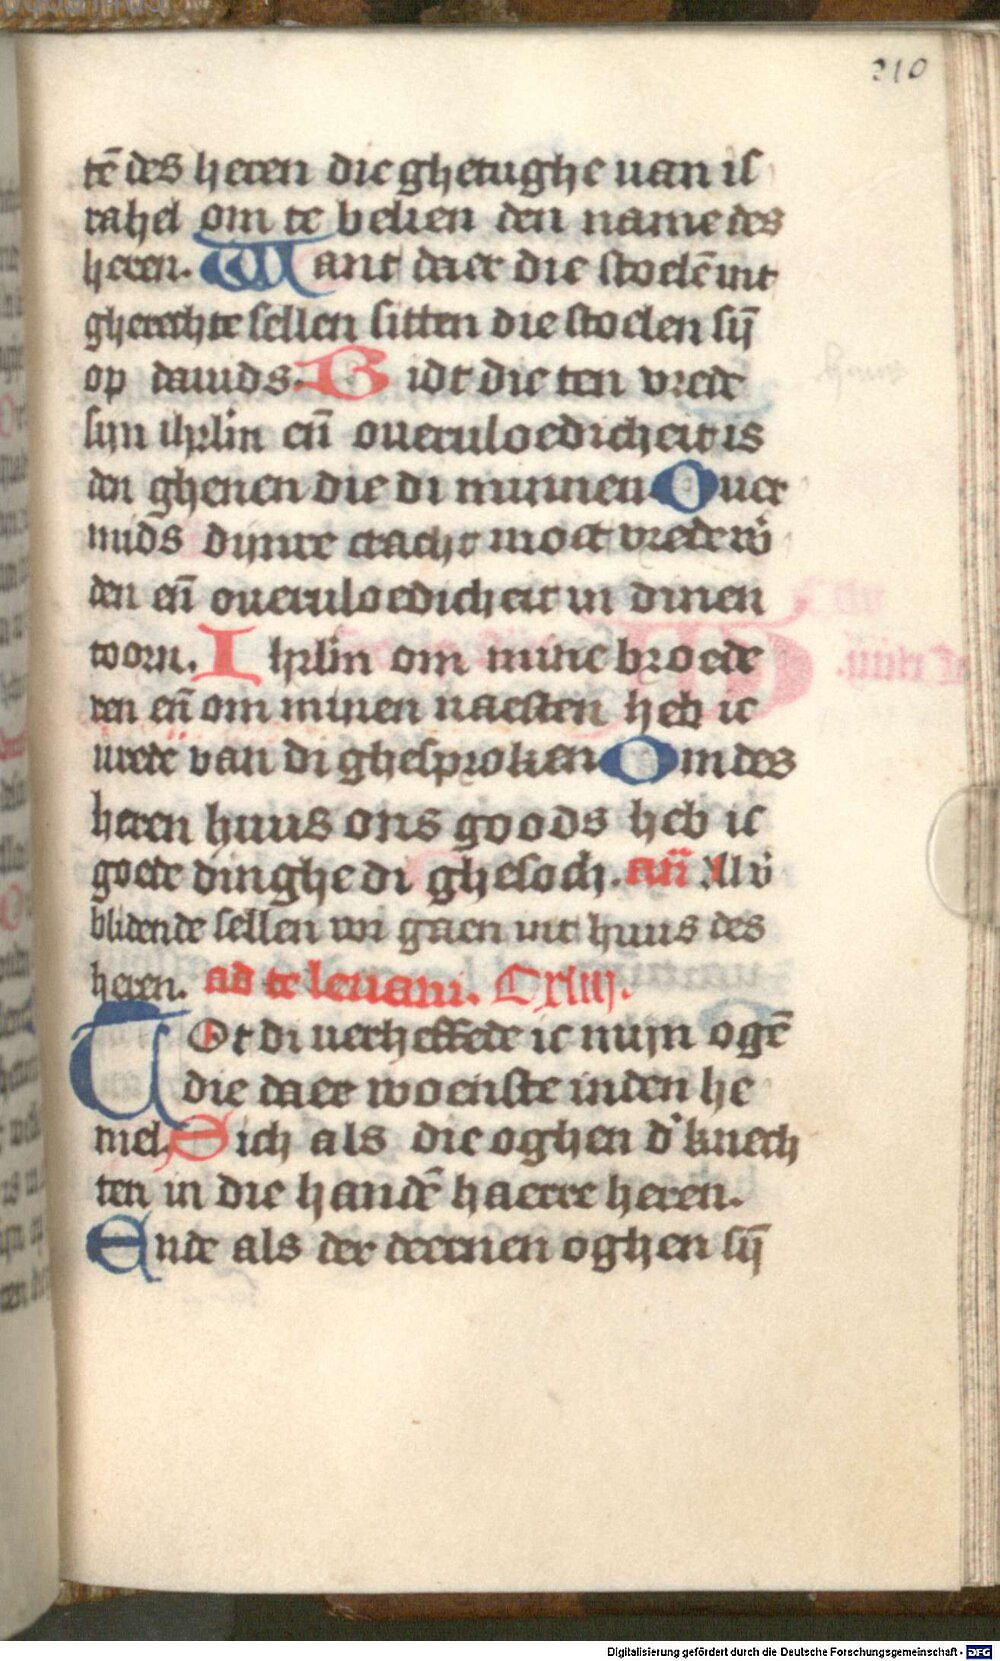 210
tē des heren die ghetughe uan is
rahel om te belien den name des
heren. Want daer die stoelē mit
gherechte sellen sitten die stoelen sij̄
op dauids. Bidt die ten vrede
sijn ihrlm eñ oueruloedicheit is
den ghenen die di minnen Ouer
mids dijnre cracht moet vrede w̄
den eñ oueruloedicheit in dinen
toorn. Ihrlm om mine broede
ren eñ om minen naesten heb ic
urede van di ghesproken Om des
heren huus ons goods heb ic
goede dinghe di ghesoch. añ
blidende sellen wi gaen int huus des
heren. ad te leuaui. Cxiiij.
Tot di uerheffede ic mijn ogē
die daer woenste inden he
mel. Sich als die oghen d' knech
ten in die handē haerre heren.
Ende als der deernen oghen sij̄
Digitalisierung gefördert durch die Deutsche Forschungsgemeinschaft - DFG